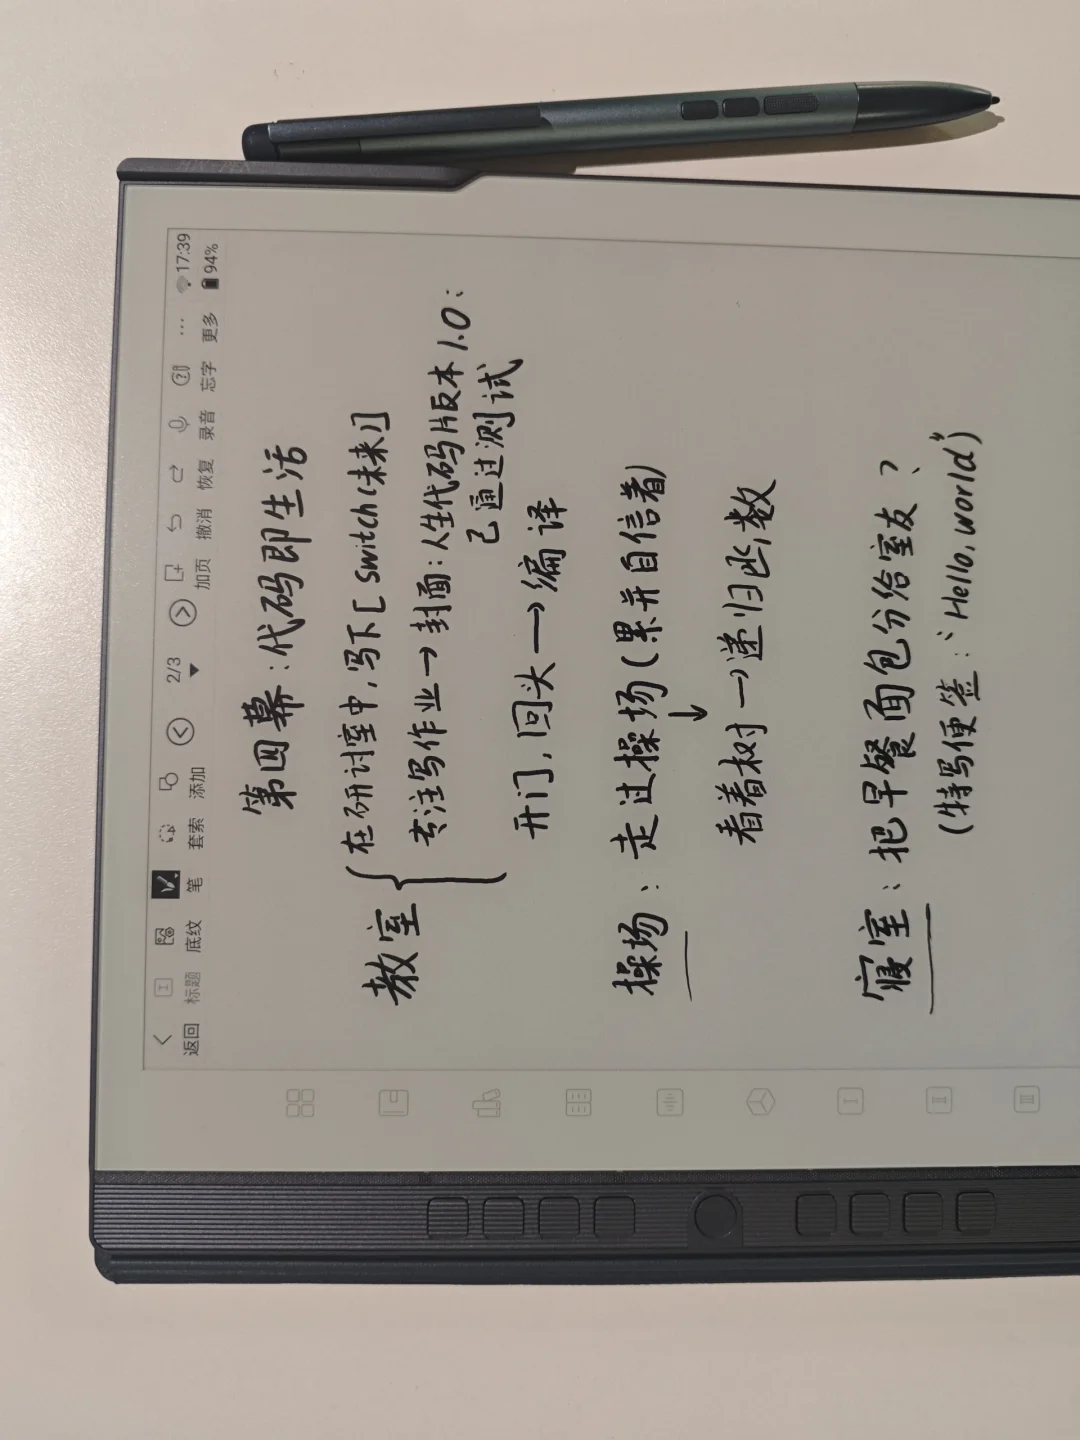 17:39
94%
返回
标题
底纹
笔
套索
添加
2/3
加页
撤消
恢复
录音
忘字
更多
第四幕：代码即生活
教室
在研讨室中，写下[switch(未来)]
专注写作业→封面：人生代码版本1.0：
已通过测试
开门，回头→编译
操场：走过操场(累并自信着)
↓
看着树→递归函数
寝室：把早餐面包分给室友？
(特写便签：“Hello,world”)